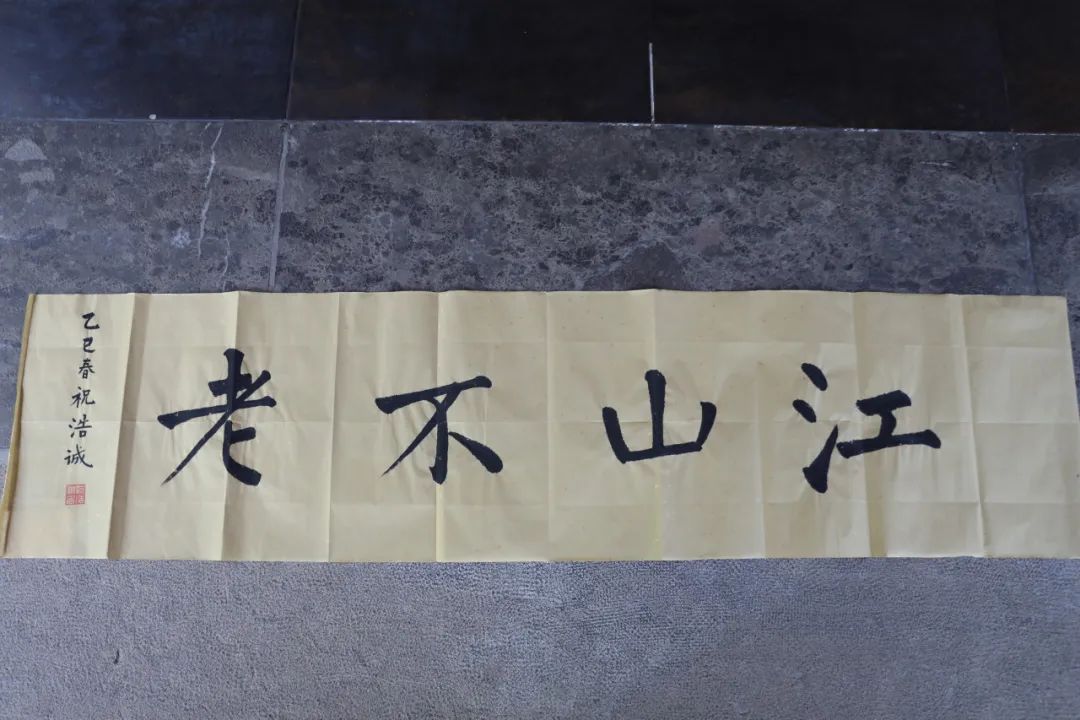 江山不老
乙巳春祝浩诚